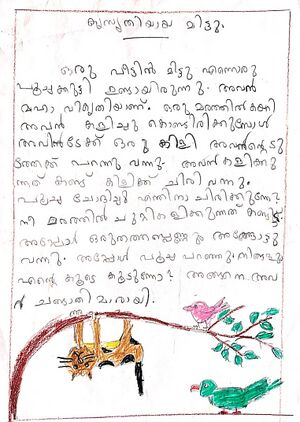 കുസൃതിയായ മിട്ടു.
ഒരു വീട്ടിൽ മിട്ടു എന്നൊരു
പൂച്ചക്കുട്ടി ഉണ്ടായിരുന്നു. അവൻ
മഹാ വികൃതിയാണ്. ഒരു മരത്തിൽ കയറി
അവൻ കളിച്ചു കൊണ്ടിരിക്കുമ്പോൾ
അവിടേക്ക് ഒരു കിളി അവൻ്റെടു
ത്തേക്ക് പറന്നു വന്നു. അവൻ കളിക്കു
ന്നത് കണ്ട് കിളിക്ക് ചിരി വന്നു.
പൂച്ച ചോദിച്ചു എന്തിനാ ചിരിക്കുന്നേ?
നീ മരത്തിൽ കളിക്കുന്നത് കണ്ടിട്ട്.
അപ്പോൾ ഒരു തത്തപ്പെണ്ണും അങ്ങോട്ടു
വന്നു. അപ്പോൾ പൂച്ച പറഞ്ഞു: നിങ്ങളും
എൻ്റെ കൂടെ കൂടുന്നോ? അങ്ങനെ അവ
ർ ചങ്ങാതിമാരായി.